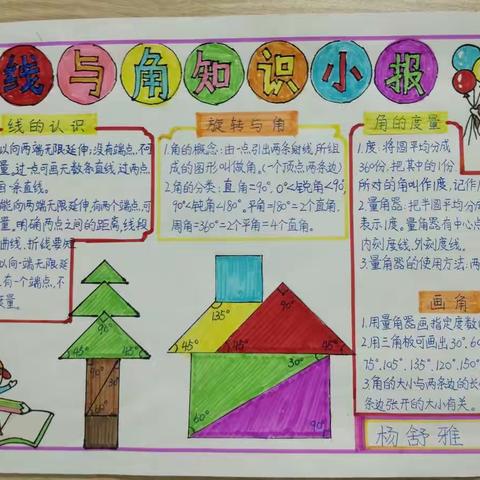 线与角知识小报
线的认识
以向两端无限延伸,没有端点,不
量,过一点可画无数条直线,过两点,
画一条直线。
能向两端无限延伸,有两个端点,可
量。明确两点之间的距离,线段
曲线,折线要短
以向一端无限延
有一个端点,不
度量。
旋转与角
1.角的概念:由一点引出两条射线所组
成的图形叫做角。(一个顶点,两条边)
2.角的分类:直角=90°,0°<锐角<90°,
90°<钝角<180°。平角=180°=2个直角.
周角=360°=2个平角=4个直角。
角的度量
1.度:将圆平均分成
360份,把其中的1份
所对的角叫作1度,记作1
2.量角器:把半圆平均分成
表示1度。量角器有中心点
内刻度线、外刻度线。
3.量角器的使用方法:两
画角
1.用量角器画指定度数的
2.用三角板可画出30°、60
75°、105°、135°、120°、150°
3.角的大小与两条边的长
条边张开的大小有关。
90°
45°
45°
90°
30°
60°
135°
90°
45°
45°
30°
60°
60°
杨舒雅